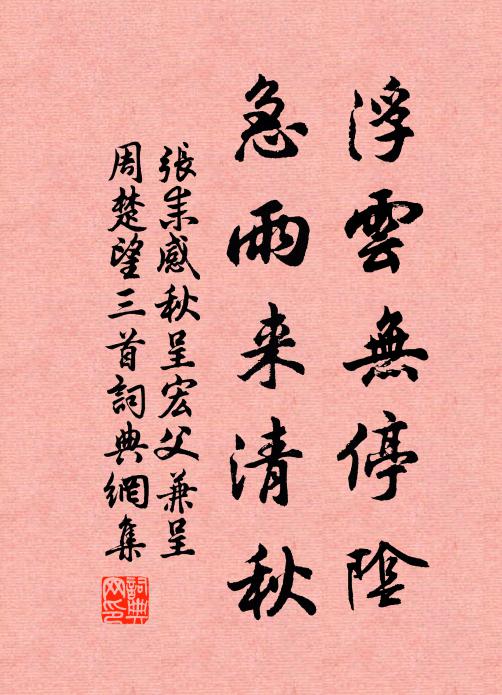 浮雲無停陰
急雨来清秋
張耒感秋呈宏父兼呈
周楚望三首詞典網集
詞典
网印